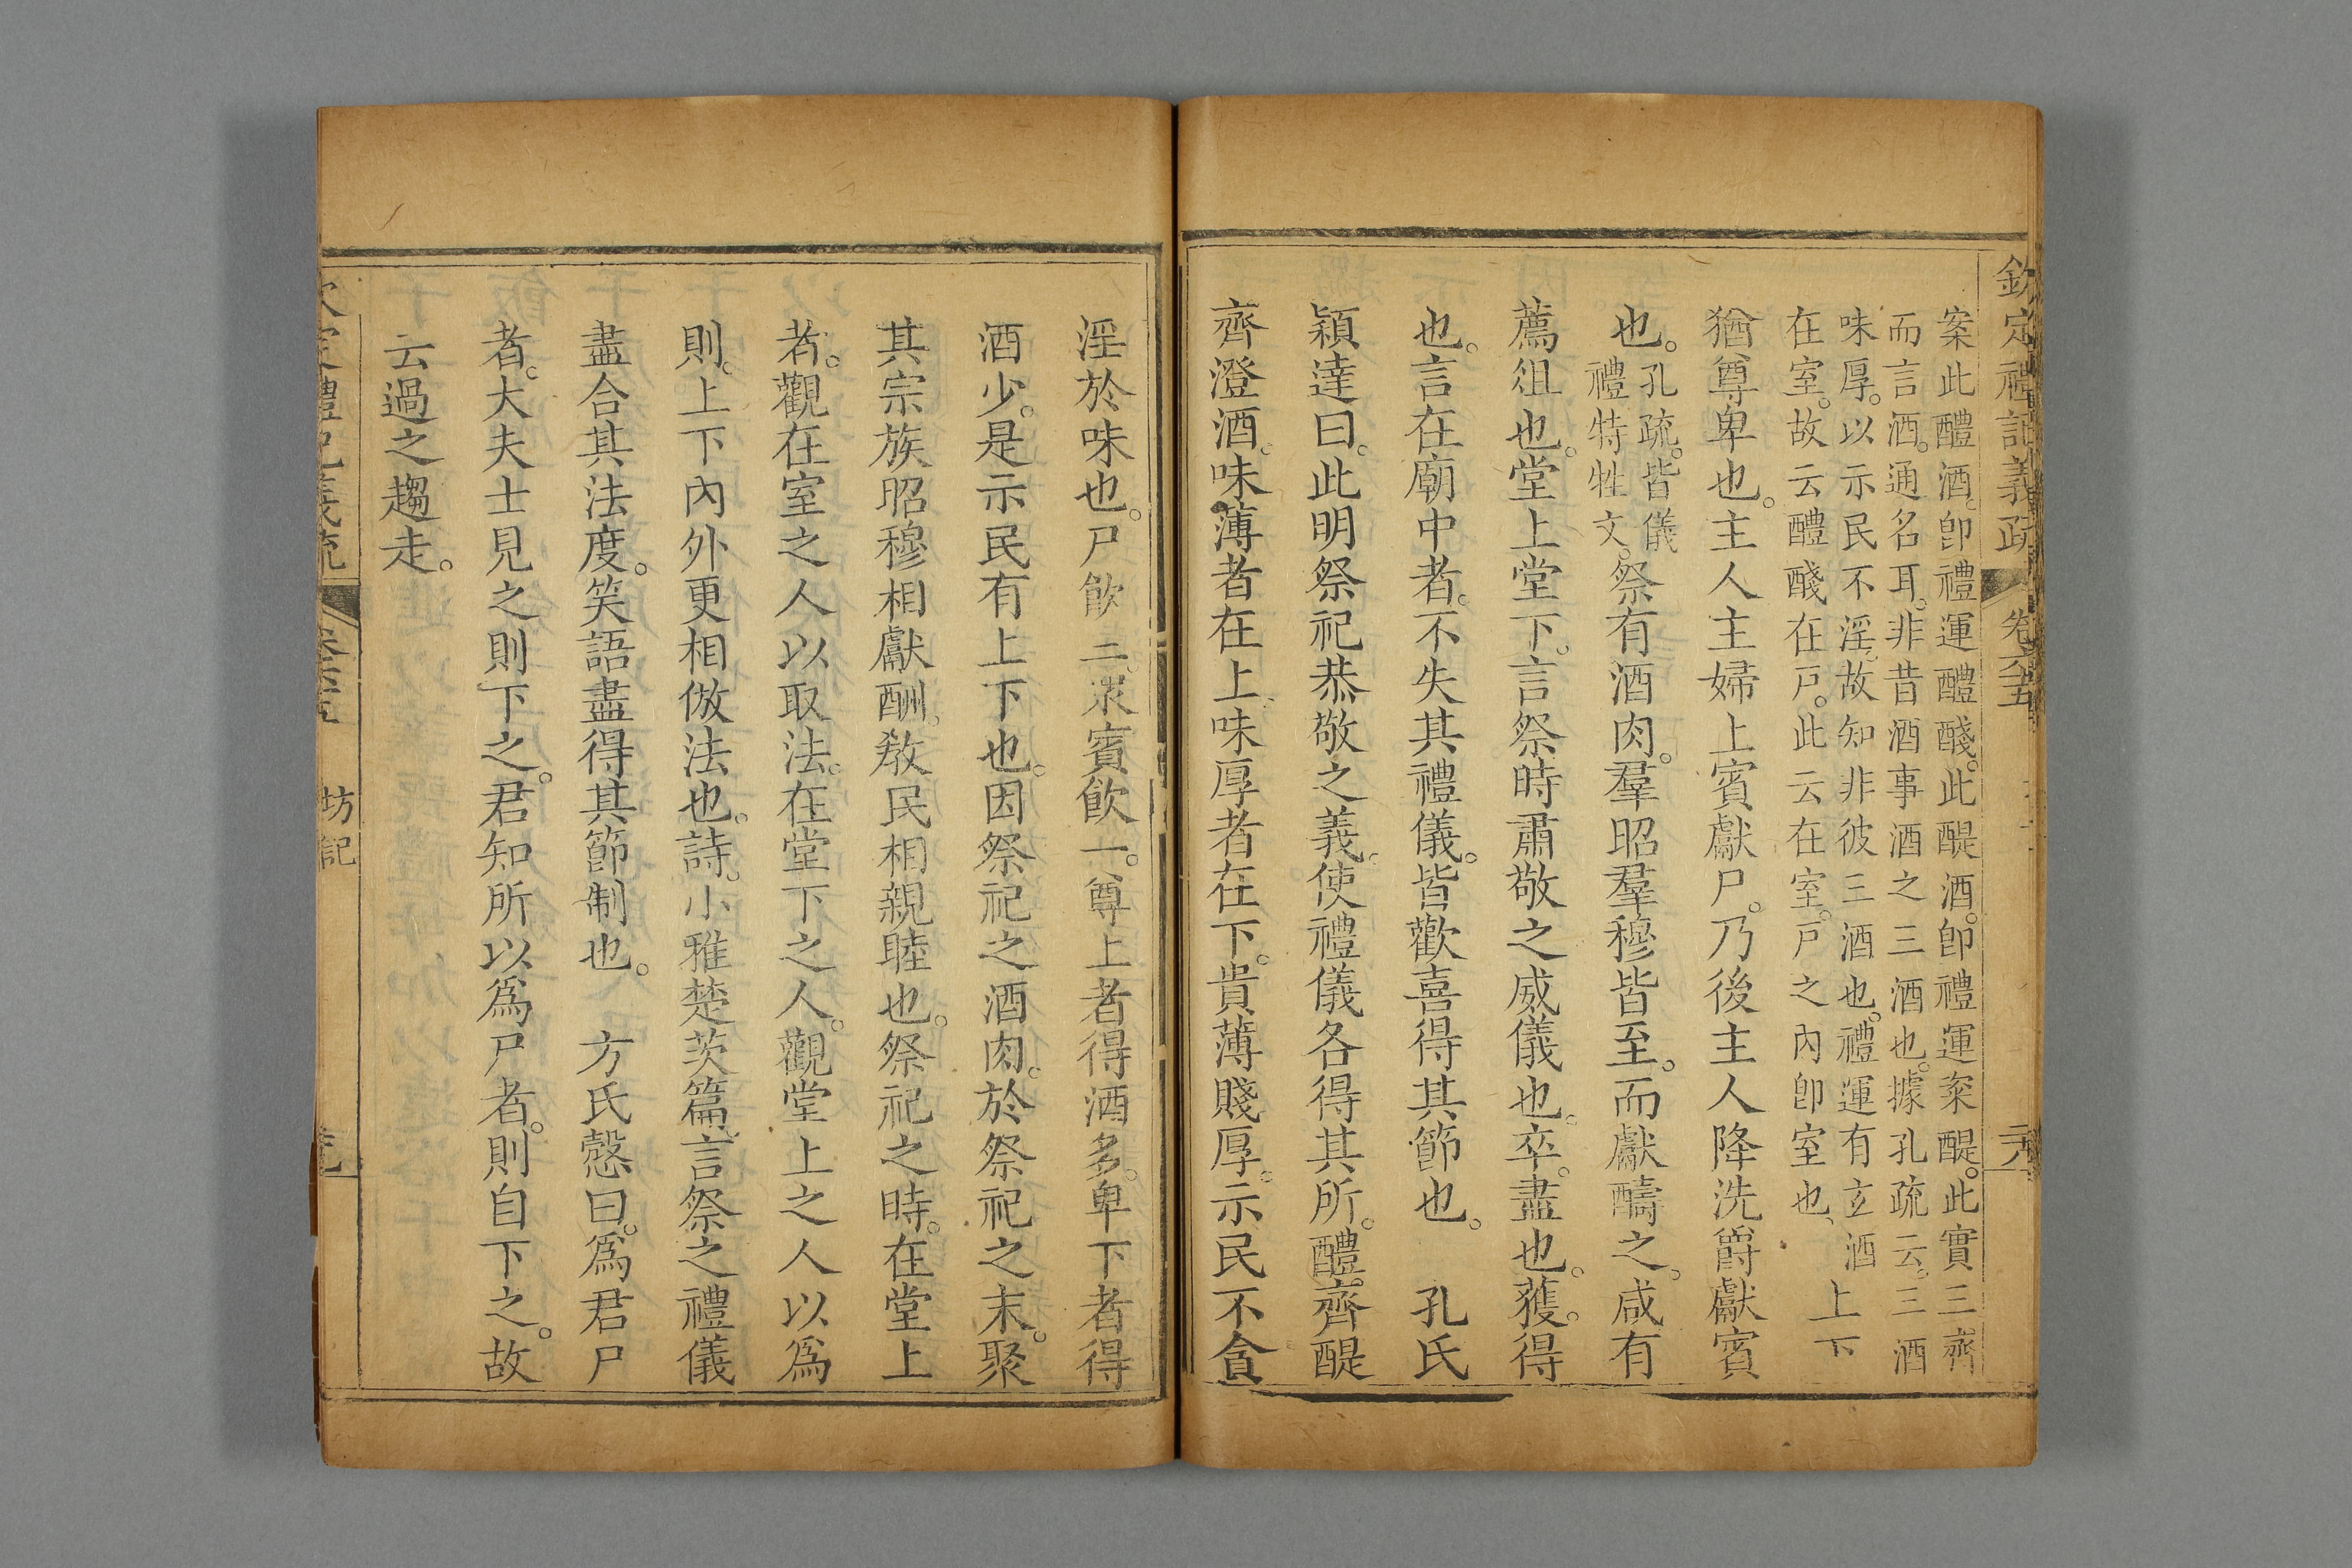 欽定禮記義疏 卷六十五 二六
案此醴酒。卽禮運醴醆。此醍酒。卽禮運粢醍。此實三齊
而言酒。通名耳。非昔酒事酒之三酒也。據孔疏云。三酒
味厚。以示民不淫。故知非彼三酒也。禮運有玄酒
在室。故云醴醆在戸。此云在室。戸之內卽室也、
上下
猶尊卑也。主人主婦上賓獻尸。乃後主人降洗爵獻賓
也。孔疏。皆儀禮特牲文。祭有酒肉。羣昭羣穆皆至。而獻醻之。咸有
薦俎也。堂上堂下。言祭時肅敬之威儀也。卒。盡也。獲。得
也。言在廟中者。不失其禮儀。皆歡喜得其節也。 孔氏
穎達曰。此明祭祀恭敬之義。使禮儀各得其所。醴齊醍
齊澄酒。味薄者在上、味厚者在下。貴薄賤厚。示民不貪
淫於味也。尸飮三。眾賓飮一。尊上者得酒多。卑下者得
酒少。是示民有上下也。因祭祀之酒肉。於祭祀之末。聚
其宗族昭穆相獻酬。敎民相親睦也。祭祀之時。在堂上
者。觀在室之人以取法。在堂下之人。觀堂上之人以爲
則。上下內外更相倣法也。詩。小雅楚茨篇。言祭之禮儀
盡合其法度。笑語盡得其節制也。 方氏慤曰。爲君尸
者。大夫士見之則下之。君知所以爲尸者。則自下之。故
云過之趨走。
定禮記義疏 坊記